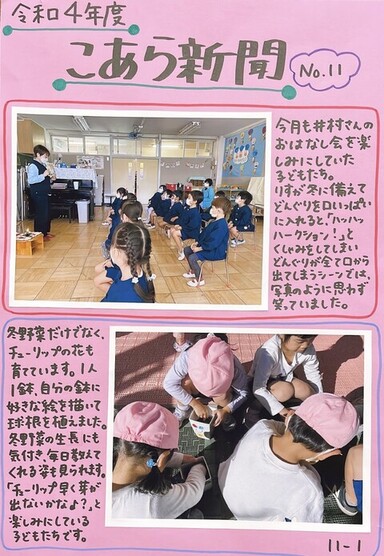 令和4年度
こあら新聞
No.11
今月も井村さんの
おはなし会を楽
しみにしていた
子どもたち。
りすが冬に備えて
どんぐりを口いっぱい
に入れると、「ハッハッ
ハークション!」と
くしゃみをしてしまい
どんぐりが全て口から
出てしまうシーンでは、
写真のように思わず
笑っていました。
冬野菜だけでなく、
チューリップの花も
育てています。1人
1鉢、自分の鉢に
好きな絵を描いて
球根を植えました。
冬野菜の生長にも
気付き、毎日教えて
くれる姿も見られます。
「チューリップ早く芽が
出ないかなよ?」と
楽しみにしている
子どもたちです。
11-1